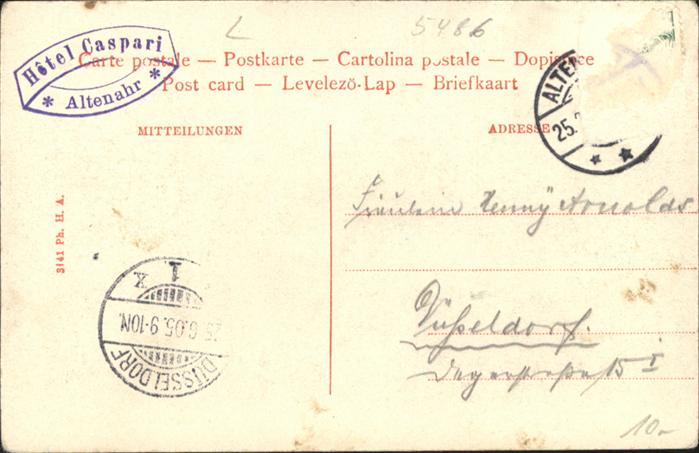 L 5486
Hôtel Caspari
* Altenahr *
Carte postale — Postkarte — Cartolina postale — Dopisnice
Post card — Levelező-Lap — Briefkaart
ALTE
25.
MITTEILUNGEN
ADRESSE
3141 Ph. H. A.
Fräulein Henny Arnolds
Düsseldorf.
15 I
1 X
25.6.05.9-10N.
DÜSSELDORF
10-